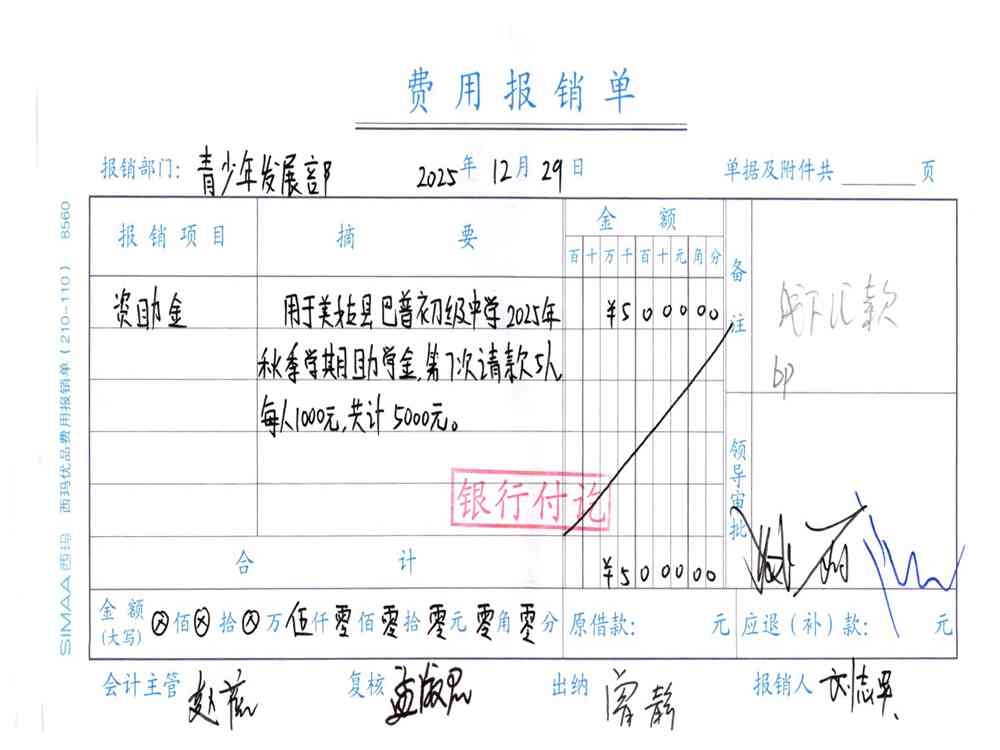 费用报销单
报销部门: 青少年发展部 2025年 12月 29日 单据及附件共 页
报销项目 摘要 金额 备注
百十万千百十元角分
资助金 用于美姑县巴普初级中学2025年 ¥500000
秋季学期助学金,第7次请款5人 线下汇款
每人1000元,共计5000元。 bp
银行付讫
领导审批
合计 ¥500000
金额(大写) ⊗佰⊗拾⊗万伍仟零佰零拾零元零角零分 原借款: 元 应退(补)款: 元
会计主管 复核 出纳 曾静 报销人 刘志军
SIMAA西玛 西玛优品费用报销单(210-110) 8560